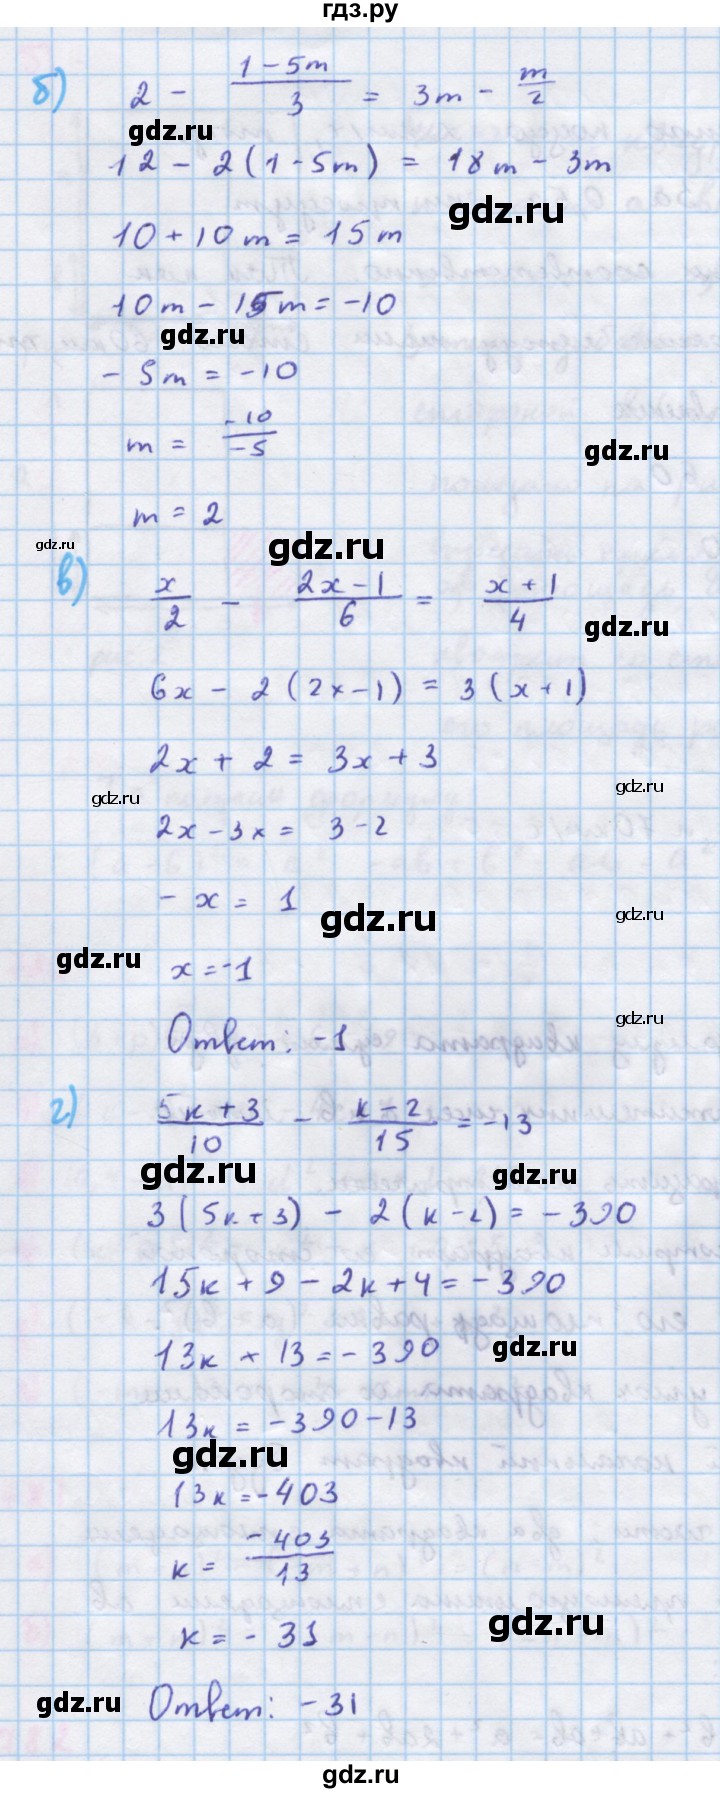 гдз.ру
б) 2 - (1-5m)/3 = 3m - m/2
gdz.ru
12 - 2(1-5m) = 18m - 3m
gdz.ru
10 + 10m = 15m
10m - 15m = -10
gdz.ru
-5m = -10
m = -10/-5
gdz.ru
m = 2
gdz.ru
gdz.ru
в) x/2 - (2x-1)/6 = (x+1)/4
gdz.ru
6x - 2(2x-1) = 3(x+1)
2x + 2 = 3x + 3
gdz.ru
gdz.ru
2x - 3x = 3-2
-x = 1
gdz.ru
gdz.ru
gdz.ru
x = -1
gdz.ru
Ответ: -1
г) (5к+3)/10 - (к-2)/15 = -13
gdz.ru
gdz.ru
3(5к+3) - 2(к-2) = -390
15к + 9 - 2к + 4 = -390
gdz.ru
13к + 13 = -390
13к = -390-13
gdz.ru
13к = -403
к = -403/13
gdz.ru
к = -31
gdz.ru
Ответ: -31
gdz.ru